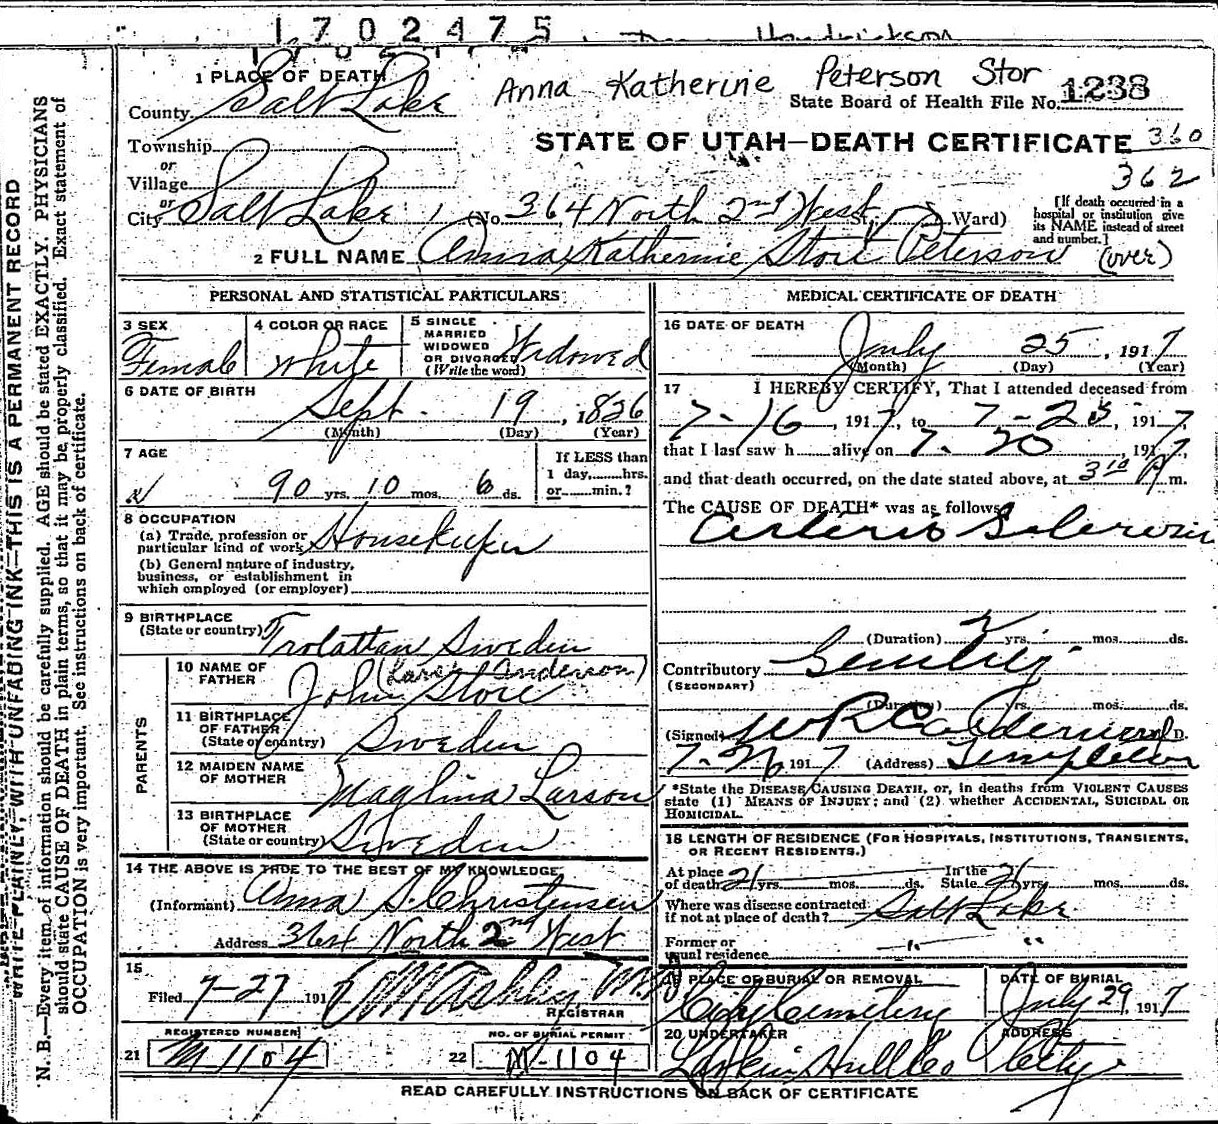 1702475 Hendrickson
Anna Katherine Peterson Stor
1 PLACE OF DEATH
County Salt Lake
State Board of Health File No. 1238
Township
or
Village
or
City Salt Lake (No. 364 North 2nd West St., Ward)
STATE OF UTAH—DEATH CERTIFICATE 360
362
[If death occurred in a
hospital or institution give
its NAME instead of street
and number.]
2 FULL NAME Anna Katherine Store Peterson (over)
PERSONAL AND STATISTICAL PARTICULARS
3 SEX
Female
4 COLOR OR RACE
White
5 SINGLE
MARRIED
WIDOWED
OR DIVORCED
(Write the word)
Widowed
6 DATE OF BIRTH
Sept. 19, 1826
(Month) (Day) (Year)
7 AGE
90 yrs. 10 mos. 6 ds.
If LESS than
1 day,......hrs.
or......min.?
8 OCCUPATION
(a) Trade, profession or
particular kind of work Housekeeper
(b) General nature of industry,
business, or establishment in
which employed (or employer)
9 BIRTHPLACE
(State or country) Trolattan Sweden
PARENTS
10 NAME OF
FATHER
(Lars Anderson)
John Store
11 BIRTHPLACE
OF FATHER
(State or country) Sweden
12 MAIDEN NAME
OF MOTHER
Maglina Larson
13 BIRTHPLACE
OF MOTHER
(State or country) Sweden
14 THE ABOVE IS TRUE TO THE BEST OF MY KNOWLEDGE
(Informant) Anna S. Christensen
Address 364 North 2nd West
15
Filed 7-27 1917 Ashley M.D.
REGISTRAR
REGISTERED NUMBER
21 M 1104
NO. OF BURIAL PERMIT
22 M-1104
MEDICAL CERTIFICATE OF DEATH
16 DATE OF DEATH
July 25, 1917
(Month) (Day) (Year)
17 I HEREBY CERTIFY, That I attended deceased from
7-16, 1917, to 7-25, 1917,
that I last saw h alive on 7-20, 1917,
and that death occurred, on the date stated above, at 3 10 P m.
The CAUSE OF DEATH* was as follows:
Arterio Sclerosis
(Duration) yrs. mos. ds.
Contributory Senility
(SECONDARY)
(Duration) yrs. mos. ds.
(Signed) W R Calderwood M.D.
7-26 1917 (Address) Templeton
*State the DISEASE CAUSING DEATH, or, in deaths from VIOLENT CAUSES
state (1) MEANS OF INJURY; and (2) whether ACCIDENTAL, SUICIDAL OR
HOMICIDAL.
18 LENGTH OF RESIDENCE (FOR HOSPITALS, INSTITUTIONS, TRANSIENTS,
OR RECENT RESIDENTS.)
At place
of death 21 yrs. mos. ds.
In the
State yrs. mos. ds.
Where was disease contracted
if not at place of death? Salt Lake
Former or
usual residence " "
19 PLACE OF BURIAL OR REMOVAL
City Cemetery
DATE OF BURIAL
July 29, 1917
20 UNDERTAKER
Larkin Hull Co
ADDRESS
City
READ CAREFULLY INSTRUCTIONS ON BACK OF CERTIFICATE
WRITE PLAINLY, WITH UNFADING INK—THIS IS A PERMANENT RECORD
N. B.—Every item of information should be carefully supplied. AGE should be stated EXACTLY. PHYSICIANS
should state CAUSE OF DEATH in plain terms, so that it may be properly classified. Exact statement of
OCCUPATION is very important. See instructions on back of certificate.